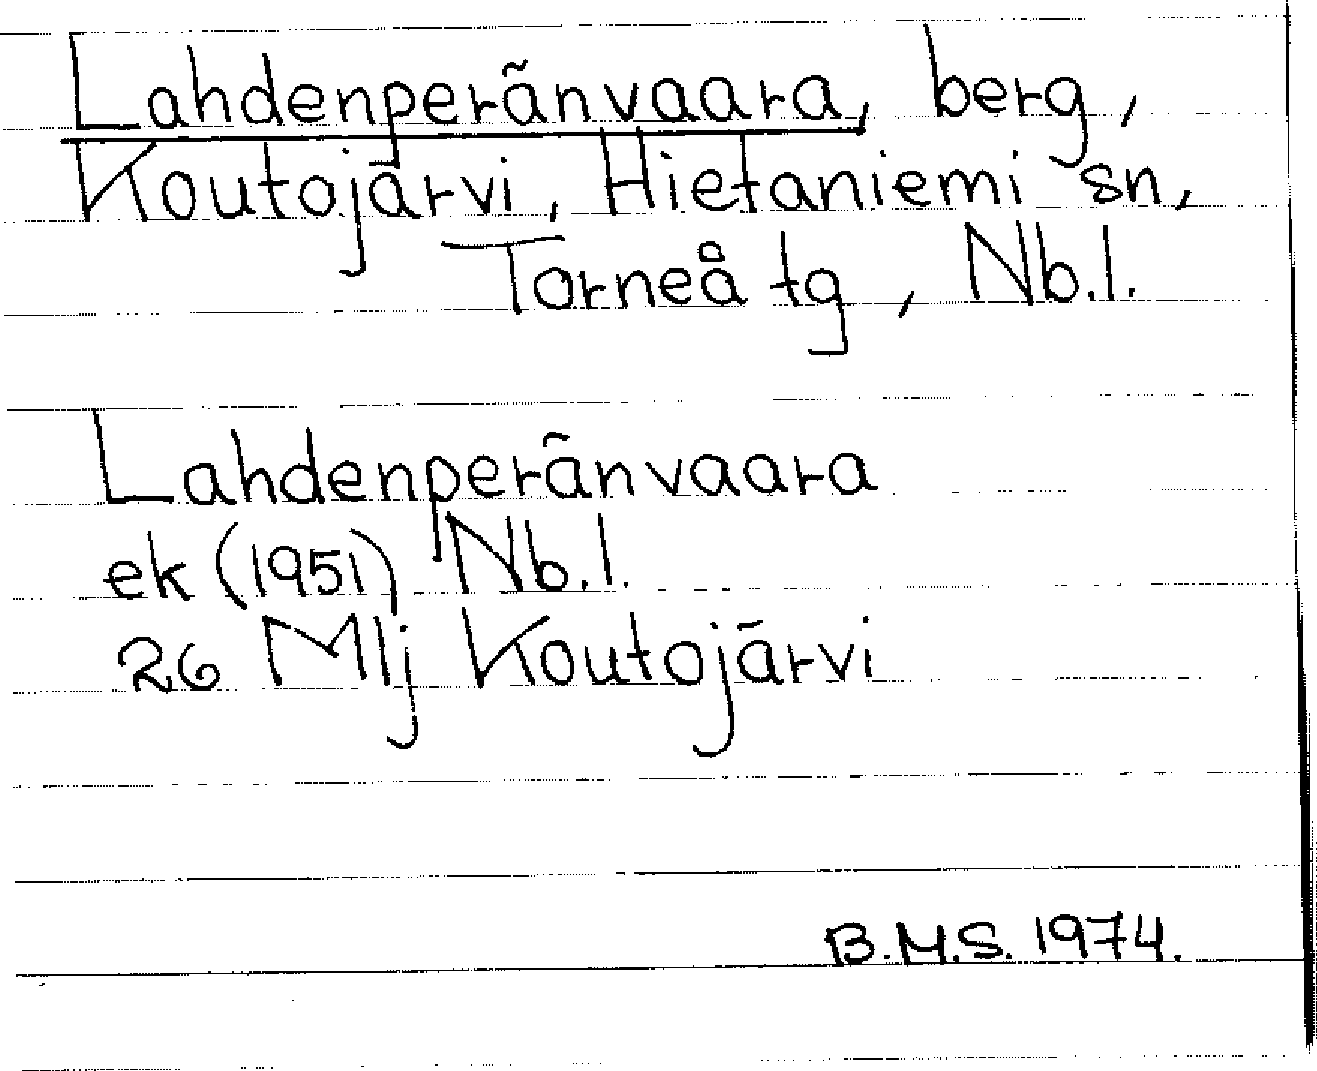 Lahdenperänvaara, berg,
Koutojärvi, Hietaniemi sn,
Torneå tg, Nb.l.
Lahdenperänvaara
ek (1951) Nb.l.
26 Mlj Koutojärvi
B.M.S. 1974.